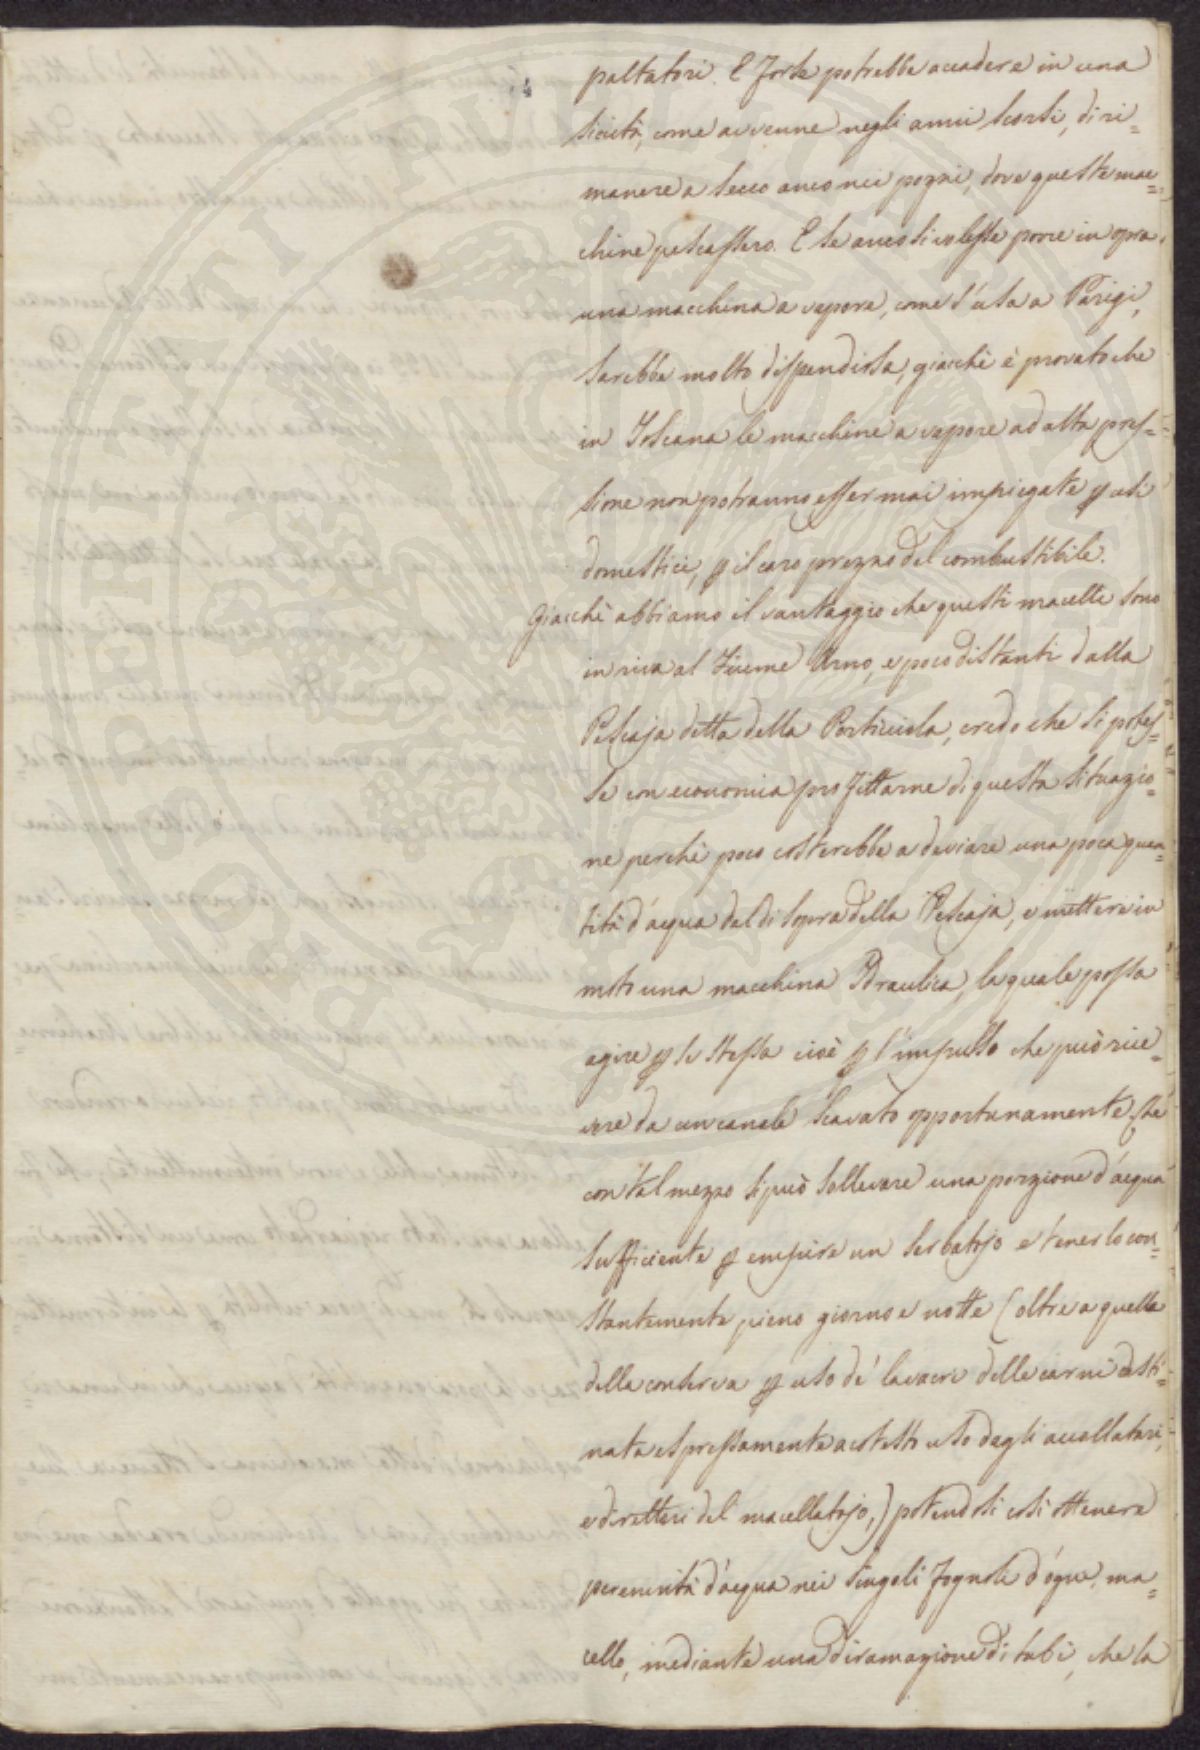 paltatori. E forse potrebbe accadere in una
siccità, come avvenne negli anni scorsi, di ri=
manere a secco anco nei pozzi, dove queste mac=
chine pescassero. E se anco si volesse porre in opra
una macchina a vapore, come s'usa a Parigi,
sarebbe molto dispendiosa, giacchè è provato che
in Toscana le macchine a vapore ad alta pres=
sione non potranno esser mai impiegate p usi
domestici, p il caro prezzo del combustibile.
Giacchè abbiamo il vantaggio che questi macelli sono
in riva al Fiume Arno, e poco distanti dalla
Pescaja detta della Porticciola, credo che si potes=
se con economia profittarne di questa situazio=
ne perchè poco costerebbe a deviare una poca quan=
tità d'acqua dal di sopra della Pescaja, e mettere in
moto una macchina Idraulica, la quale possa
agire p se stessa cioè p l'impulso che può rice=
vere da un canale scavato opportunamente. Che
con tal mezzo si può sollevare una porzione d'acqua
sufficiente p empire un serbatojo e tenerlo con=
stantemente pieno giorno e notte (oltre a quella
della conserva p uso de' lavacri delle carni desti=
nata espressamente a cotesto uso dagli accollatari,
e direttori del macellatojo,) potendosi così ottenere
perennità d'acqua nei singoli fognoli d'ogni ma=
cello, mediante una diramazione di tubi, che la